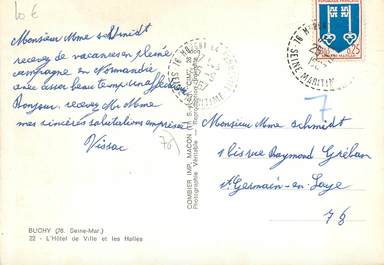 10 €
Monsieur Mme Schmidt
recevez de vacances en pleine
campagne en Normandie
avec assez beau temps
Bonjour recevez Mr Mme
mes sincères salutations
Vissac
78
BUCHY (76. Seine-Mar.)
22 - L'Hôtel de Ville et les Halles
COMBIER IMP. MACON
Photographie Véritable
76
SEINE MARITIME
0,25
7
Monsieur Mme Schmidt
1 bis rue Raymond Gréban
St Germain-en-Laye
78